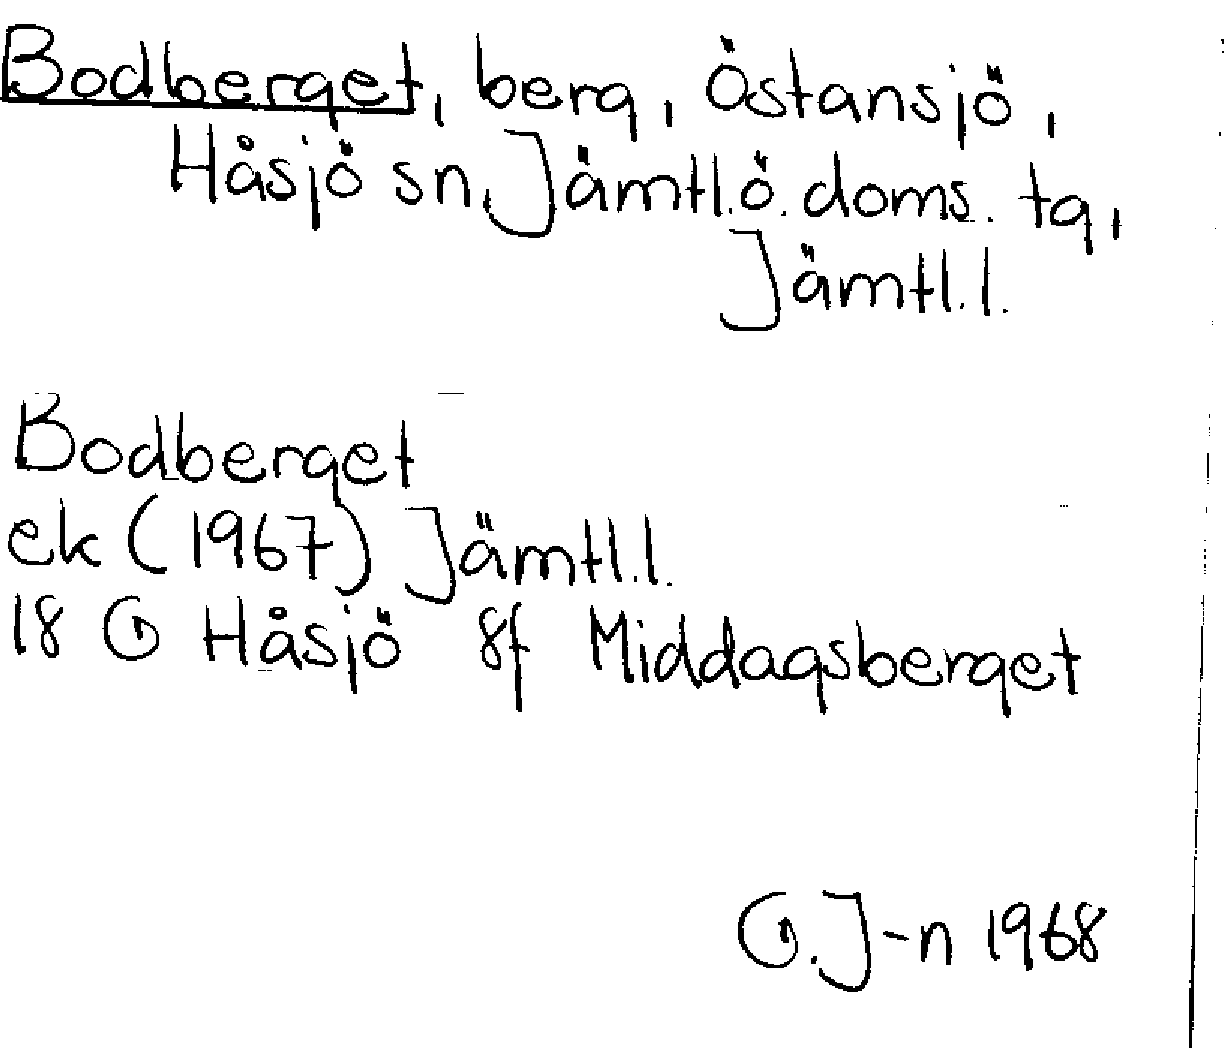 Bodberget, berg, Östansjö,
Håsjö sn, Jämtl.ö. doms. tg,
Jämtl.l.
Bodberget
ek (1967) Jämtl.l.
18 G Håsjö 8f Middagsberget
G.J-n 1968